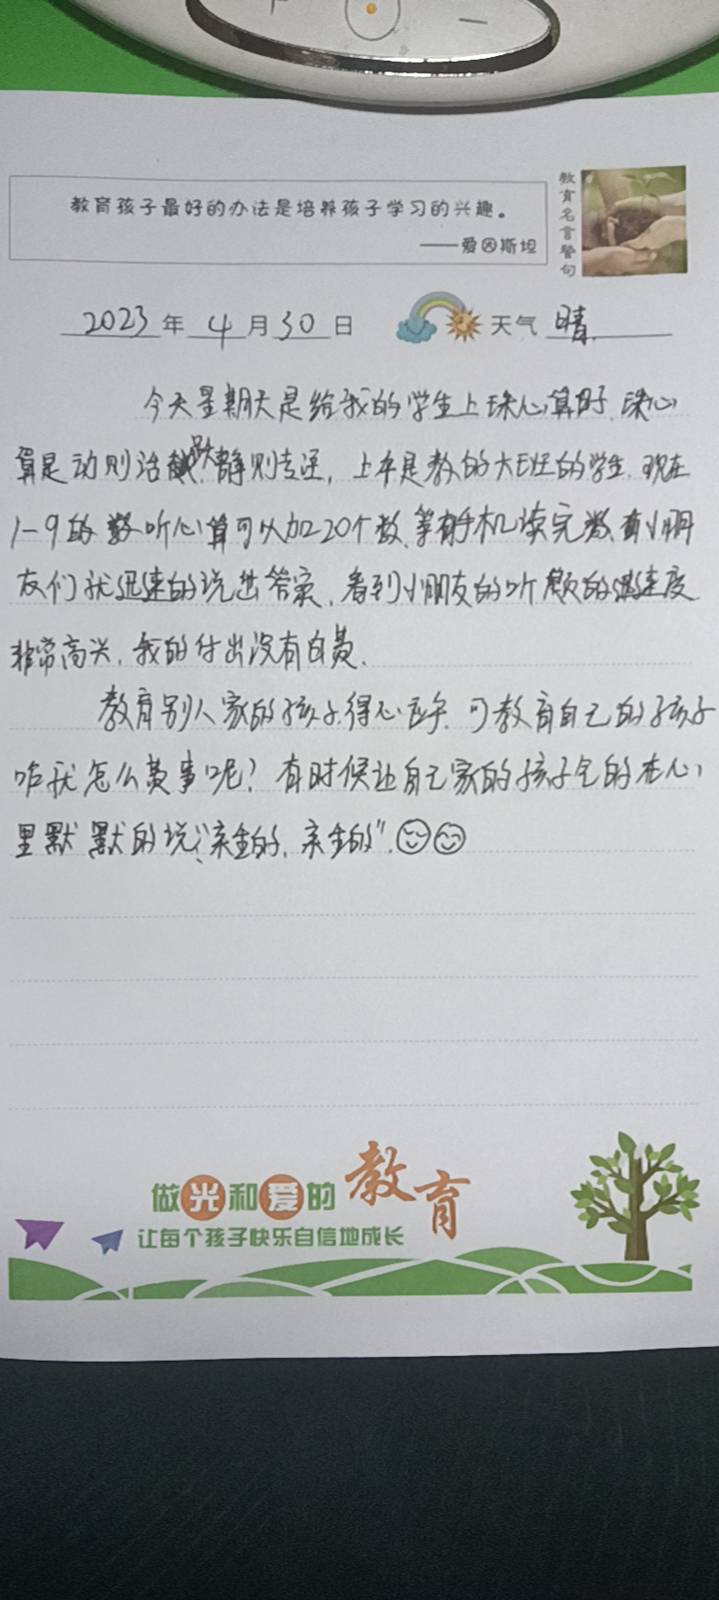 教育孩子最好的办法是培养孩子学习的兴趣。
——爱因斯坦
教育名言警句
2023年4月30日 天气 晴.
今天星期天是给我的学生上珠心算时.珠心
算是动则活跃.静则专还,上午是教的大班的学生.现在
1-9的数听心算可以加20个数.等手机读完数.有小朋
友们就迅速的说出答案.看到小朋友的听题的速度
非常高兴.我的付出没有白费.
教育别人家的孩子得心应手.可教育自己的孩子
咋就怎么费事呢?有时候让自己家的孩子气的在心
里默默的说:"亲的.亲的".
做光和爱的教育
让每个孩子快乐自信地成长